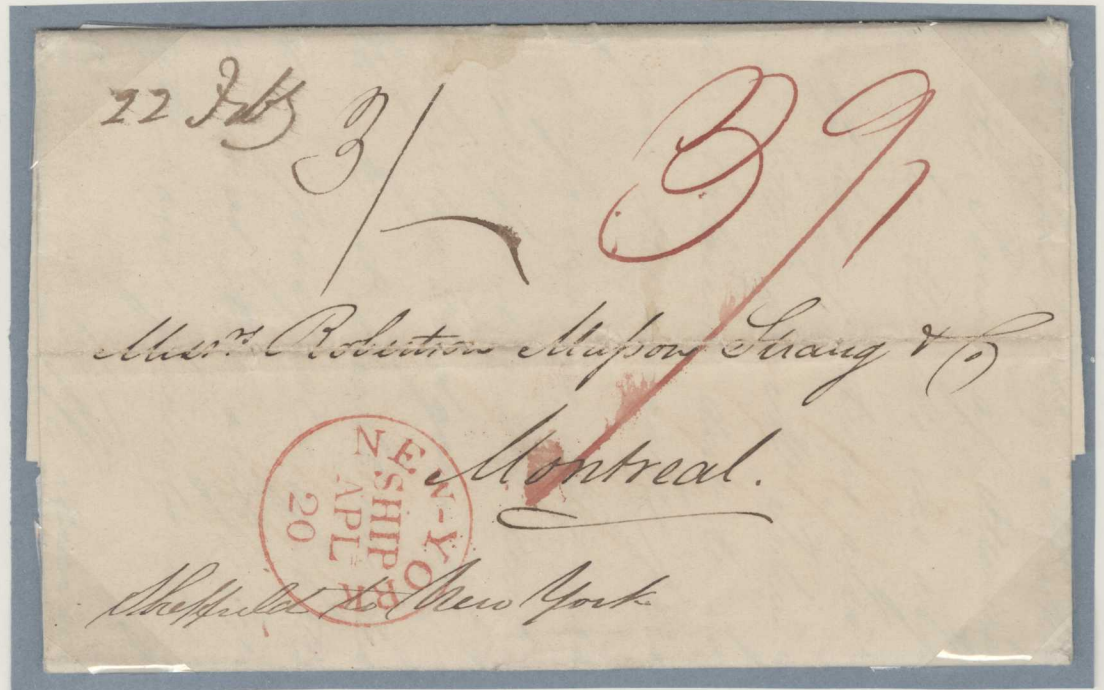 22 Feby
3/-
3/9
Messrs. Robertson Masson Strang & Co
Montreal.
NEW-YORK
SHIP
APL
20
Sheffield to New York